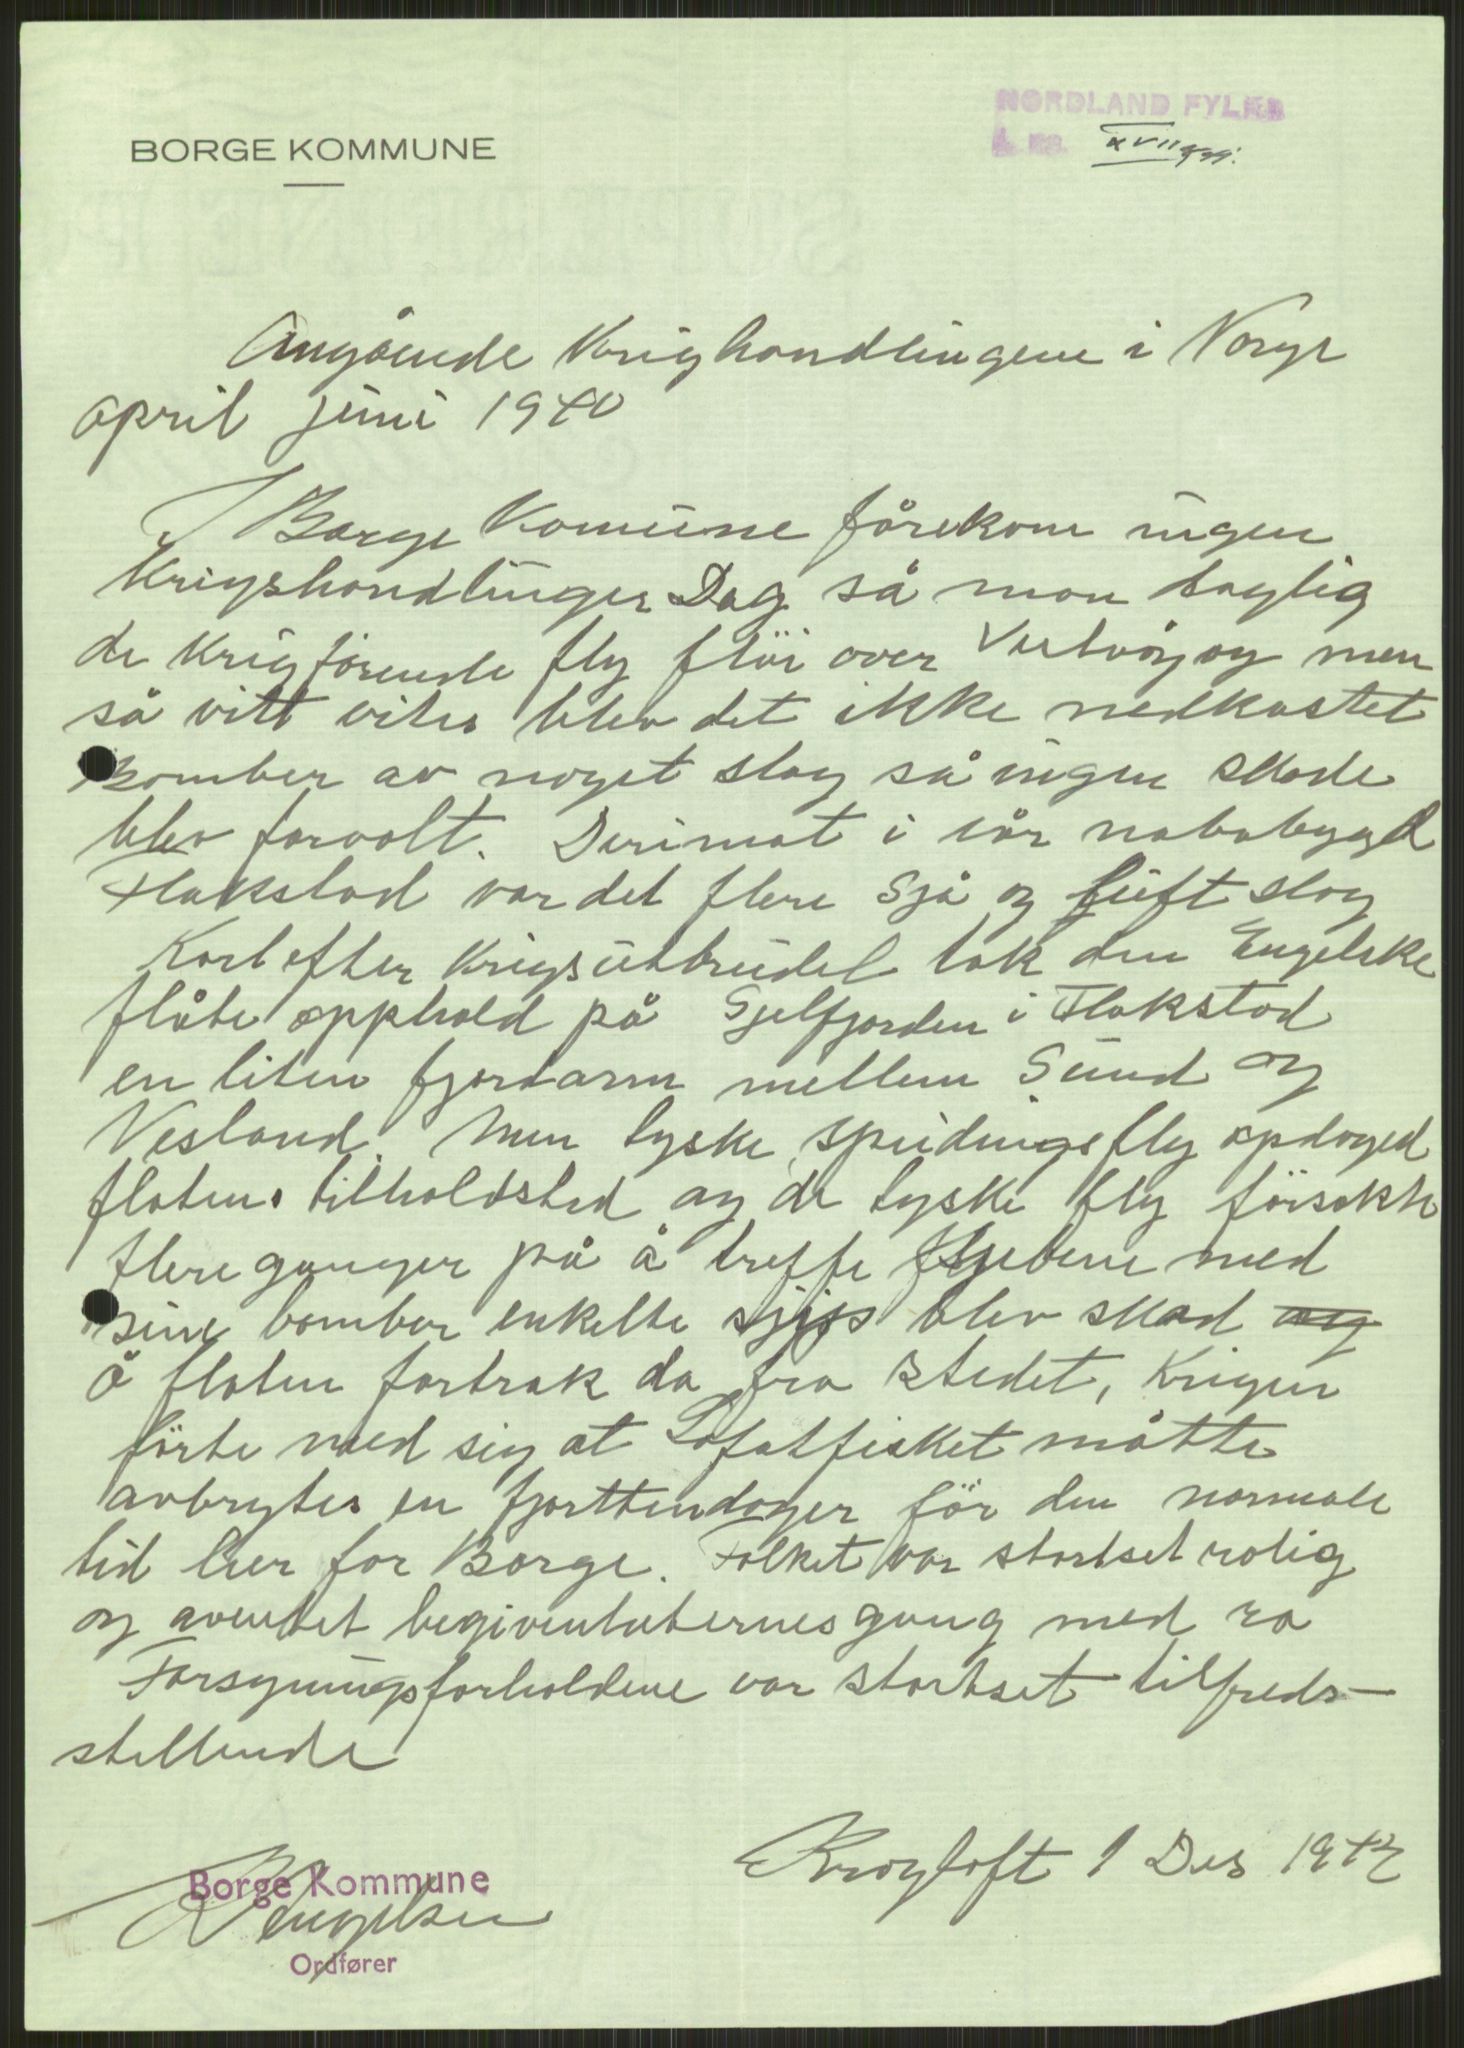 BORGE KOMMUNE
NORDLAND FYLKE
Angående Krighandlingene i Norge
april juni 1940
I Borge Komune fårekom ingen
Krigshandlinger Dog så man daglig
de krigførende fly fløi over Vestvågøy men
så vitt vites blev det ikke nedkastet
Bomber av noget slag så ingen skade
blev forvolt. Derimot i vår nabobygd
Flakstad var det flere Sjø og luft slag
Kort efter krigsutbrudet tok den Engelske
flåte opphold på Sjelfjorden i Flakstad
en liten fjordarm mellem Sund og
Vesland. Men tyske speidingsfly opdaged
flåtens tilholdsted og de tyske fly försøkte
flere ganger på å treffe med
sine bomber enkelte blev skad og
å flåten fortrak da fra stedet, Krigen
förte med sig at Lofotfisket måtte
avbrytes en fjorttendager för den normale
tid her for Borge. Folket var stortset rolig
og aventet begivenheternes gang med ro
Forsyningsforholdene var stortset tilfreds-
stillende
Krogtoft 1 Des 1942
Borge Kommune
Ordfører